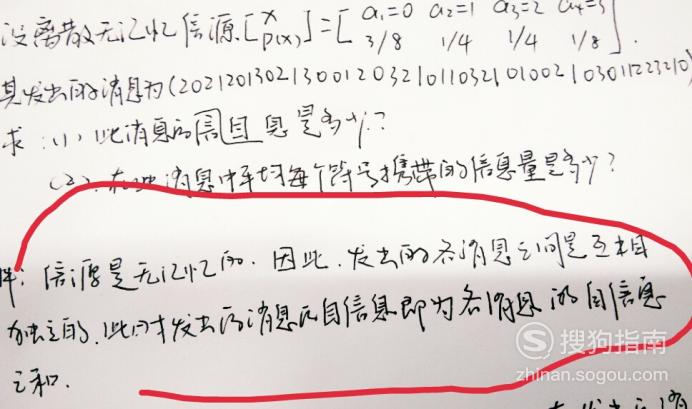 设离散无记忆信源[X P(x)]=[a₁=0 a₂=1 a₃=2 a₄=3
3/8 1/4 1/4 1/8].
其发出的消息为(20212013021300120321011032101002103011223210)
求:(1).此消息的信自息是多少?
(2).在此消息中平均每个符号携带的信息量是多少?
解:信源是无记忆的.因此.发出的各消息之间是互相
独立的.此时发出的消息的自信息即为各消息的自信息
之和.
搜狗指南
zhinan.sogou.com